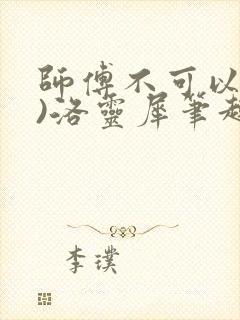 師傅不可以
)洛靈犀筆
李璞